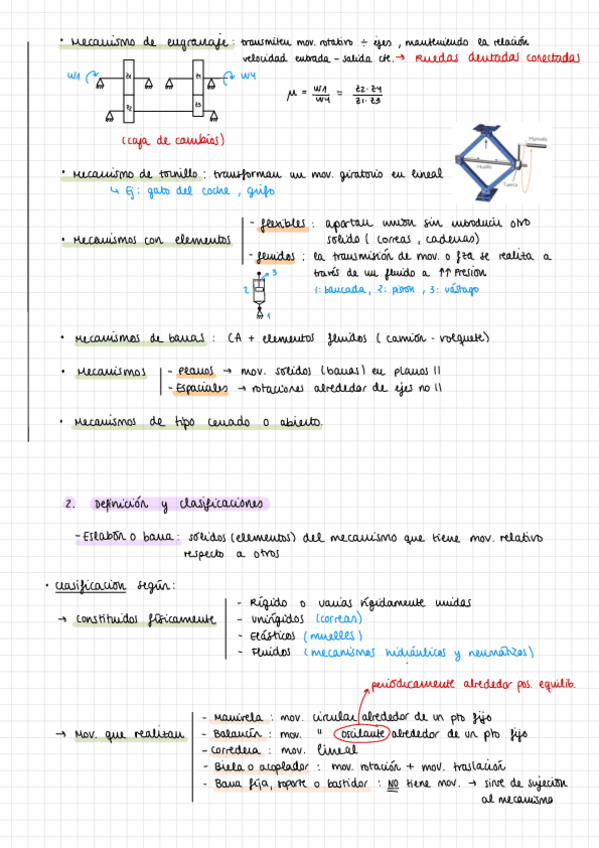 • Mecanismo de engranaje: transmiten mov. rotativo ÷ ejes, manteniendo la relación
velocidad entrada - salida cte. → Ruedas dentadas conectadas
W1 Z1 Z4 W4
Z2 Z3
μ = W1/W4 = Z2·Z4/Z1·Z3
(caja de cambios)
• Mecanismo de tornillo: transforman un mov. giratorio en lineal
↳ Ej: gato del coche, grifo
Manivela
Husillo
Tuerca
• Mecanismos con elementos
- flexibles: aportan unión sin introducir otro
solido (correas, cadenas)
- fluidos: la transmisión de mov. o fza se realiza a
través de un fluido a ↑↑ Presión
1: bancada, 2: piston, 3: vástago
3
2
1
• Mecanismos de barras: CA + elementos fluidos (camión - volquete)
• Mecanismos
- Planos → mov. solidos (barras) en planos ||
- Espaciales → rotaciones alrededor de ejes no ||
• Mecanismos de tipo cerrado o abierto.
2. Definición y clasificaciones
- Eslabón o barra: sólidos (elementos) del mecanismo que tiene mov. relativo
respecto a otros
• Clasificación según:
→ Constituidos físicamente
- Rígido o varias rígidamente unidas
- Unirígidos (correas)
- Elásticos (muelles)
- Fluidos (mecanismos hidráulicos y neumáticos)
periódicamente alrededor pos. equilib.
→ Mov. que realizan
- Manivela: mov. circular alrededor de un pto fijo
- Balancín: mov. " oscilante alrededor de un pto fijo
- Corredera: mov. lineal
- Biela o acoplador: mov. rotación + mov. traslación
- Barra fija, soporte o bastidor: NO tiene mov. → sirve de sujeción
al mecanismo